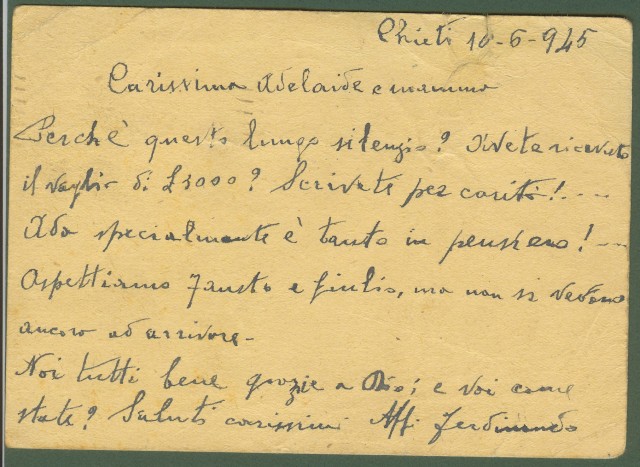 Chieti 10-6-945
Carissima Adelaide e mamma
Perchè questo lungo silenzio? Avete ricevuto
il vaglia di £3000? Scrivete per carità!....
Ada specialmente è tanto in pensiero!...
Aspettiamo Fausto e Giulio, ma non si vedono
ancora ad arrivare-
Noi tutti bene grazie a Dio; e voi come
state? Saluti carissimi Aff. Ferdinando